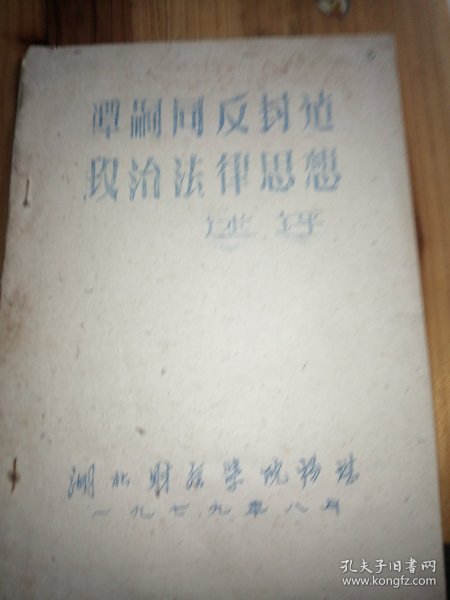 谭嗣同反封建
政治法律思想
述评
湖北财经学院
一九七九年八月
孔夫子旧书网
www.kongfz.com